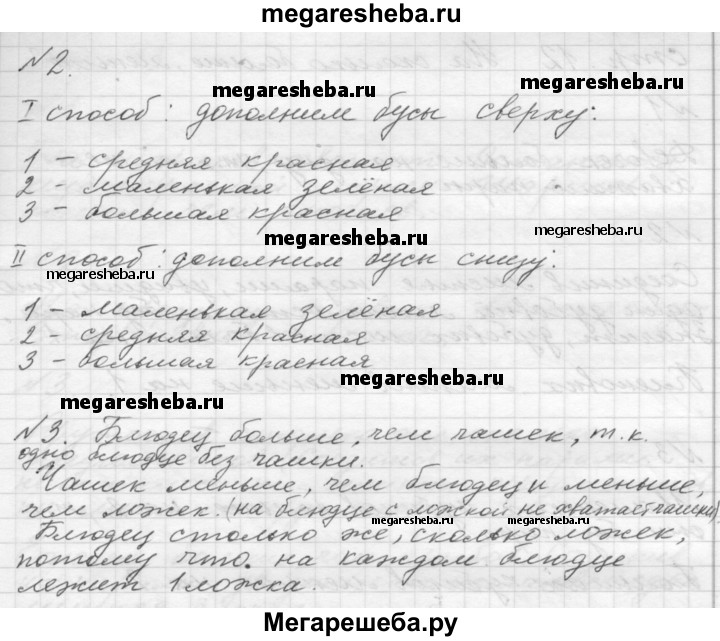 megaresheba.ru
№2.
megaresheba.ru
I способ: дополним бусы сверху:
megaresheba.ru
1 – средняя красная
2 – маленькая зелёная
3 – большая красная
megaresheba.ru
megaresheba.ru
II способ: дополним бусы снизу:
megaresheba.ru
1 – маленькая зелёная
2 – средняя красная
3 – большая красная
megaresheba.ru
megaresheba.ru
№3. Блюдец больше, чем чашек, т.к.
одно блюдце без чашки.
Чашек меньше, чем блюдец и меньше,
чем ложек. (на блюдце с ложкой не хватает чашки)
megaresheba.ru
megaresheba.ru
Блюдец столько же, сколько ложек,
потому что на каждом блюдце
лежит 1 ложка.
Мегарешеба.ру